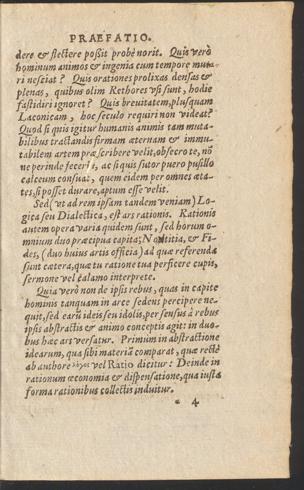 PRAEFATIO.
dere & flectere possit probè norit. Quis verò
hominum animos & ingenia cum tempore muta-
ri nesciat? Quis orationes prolixas densas &
plenas, quibus olim Rethores vsi sunt, hodie
fastidiri ignoret? Quis breuitatem, plusquam
Laconicam, hoc seculo requiri non videat?
Quod si quis igitur humanis animis tam muta-
bilibus tractandis firmam æternam & immu-
tabilem artem præscribere velit, obsecro te, nō
ne perinde fecerit, ac si quis sutor puero pusillo
calceum consuat, quem eidem per omnes æta-
tes, si posset durare, aptum esse velit.
Sed (vt ad rem ipsam tandem veniam) Lo-
gica seu Dialectica, est ars rationis. Rationis
autem opera varia quidem sunt, sed horum o-
mnium duo præcipua capita; Notitia, & Fi-
des, (duo huius artis officia) ad quæ referenda
sunt cætera, quæ tu ratione tua perficere cupis,
sermone vel calamo interprete.
Quia verò non de ipsis rebus, quas in capite
hominis tanquam in arce sedens percipere ne-
quit, sed earū ideis seu idolis, per sensus à rebus
ipsis abstractis & animo conceptis agit: in duo-
bus hæc ars versatur. Primum in abstractione
idearum, qua sibi materiā comparat, quæ rectè
ab authore λόγος vel Ratio dicitur: Deinde in
rationum œconomia & dispensatione, qua iusta
forma rationibus collectis induitur.
* 4